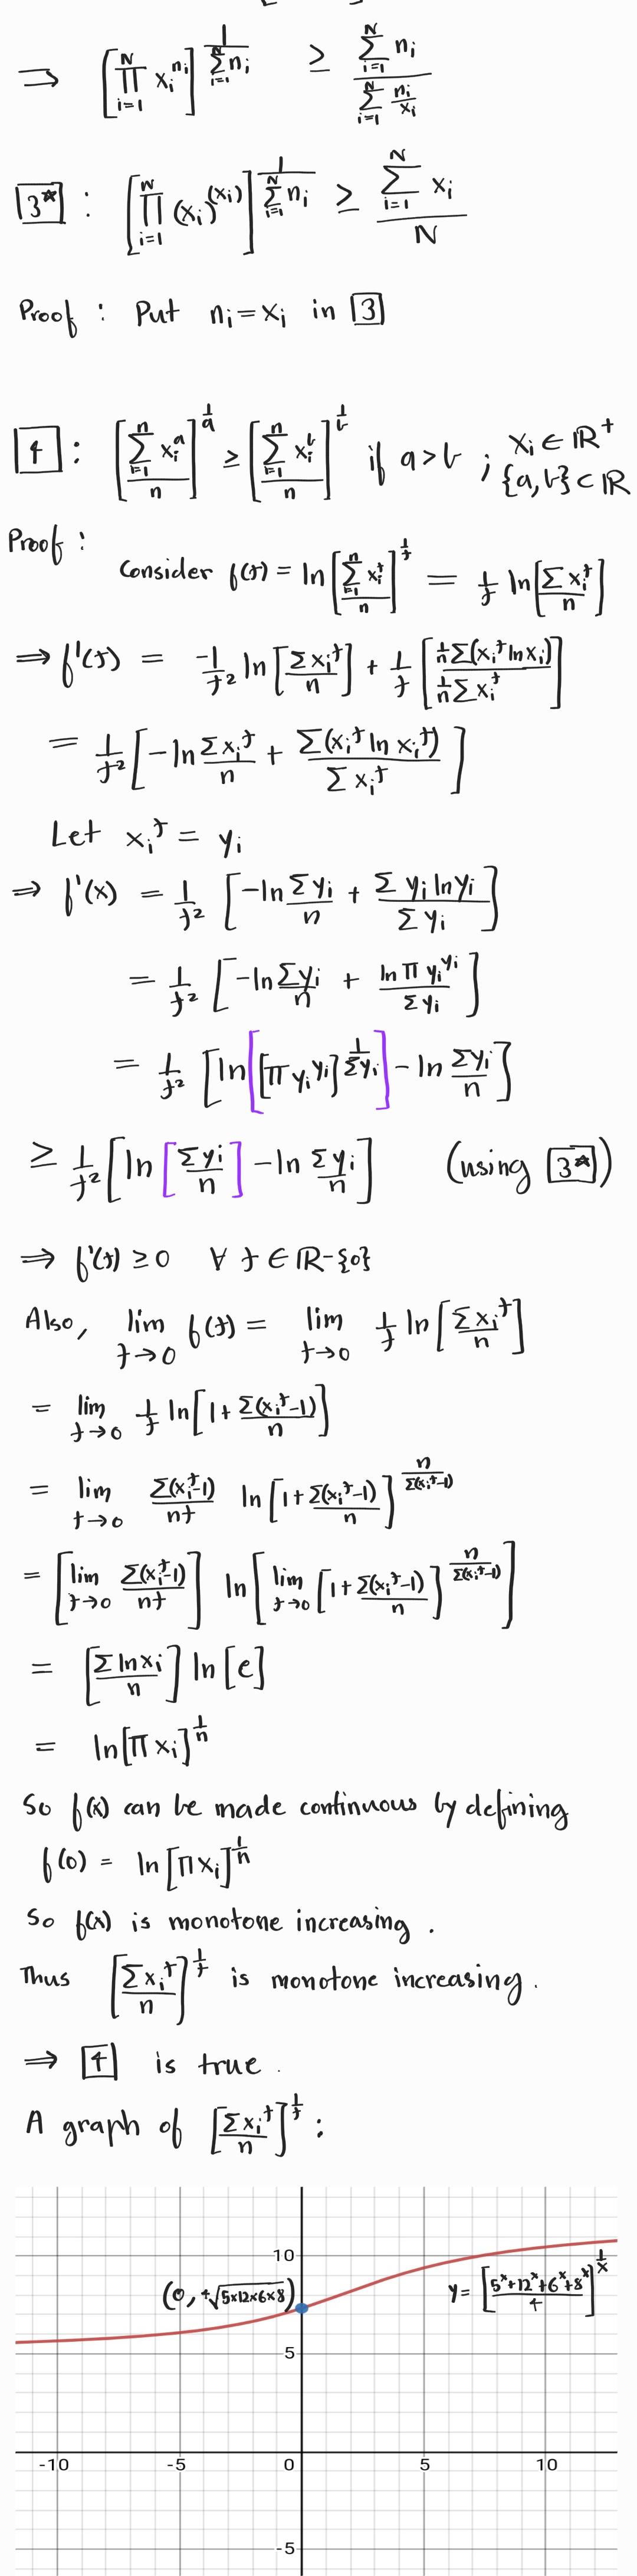 ⟹ [∏_{i=1}^{N} x_i^{n_i}]^{1/(∑_{i=1}^{N} n_i)} ≥ (∑_{i=1}^{N} n_i)/(∑_{i=1}^{N} n_i/x_i)
3* : [∏_{i=1}^{N} (x_i)^{(x_i)}]^{1/(∑_{i=1}^{N} n_i)} ≥ (∑_{i=1}^{N} x_i)/N
Proof : Put n_i = x_i in 3
4 : [(∑_{i=1}^{n} x_i^a)/n]^{1/a} ≥ [(∑_{i=1}^{n} x_i^b)/n]^{1/b} if a > b ; x_i ∈ ℝ⁺ {a, b} ⊂ ℝ
Proof :
Consider f(t) = ln[(∑_{i=1}^{n} x_i^t)/n]^{1/t} = 1/t ln[(∑ x_i^t)/n]
⟹ f'(t) = -1/t² ln[(∑ x_i^t)/n] + 1/t [(1/n ∑(x_i^t ln x_i))/(1/n ∑ x_i^t)]
= 1/t² [-ln (∑ x_i^t)/n + (∑(x_i^t ln x_i^t))/(∑ x_i^t)]
Let x_i^t = y_i
⟹ f'(x) = 1/t² [-ln (∑ y_i)/n + (∑ y_i ln y_i)/(∑ y_i)]
= 1/t² [-ln (∑ y_i)/n + (ln ∏ y_i^{y_i})/(∑ y_i)]
= 1/t² [ln[[∏ y_i^{y_i}]^{1/(∑ y_i)}] - ln (∑ y_i)/n]
≥ 1/t² [ln [(∑ y_i)/n] - ln (∑ y_i)/n] (using 3*)
⟹ f'(t) ≥ 0 ∀ t ∈ ℝ-{0}
Also, lim_{t→0} f(t) = lim_{t→0} 1/t ln[(∑ x_i^t)/n]
= lim_{t→0} 1/t ln[1 + (∑(x_i^t-1))/n]
= lim_{t→0} (∑(x_i^t-1))/(nt) ln[1 + (∑(x_i^t-1))/n]^{n/(∑(x_i^t-1))}
= [lim_{t→0} (∑(x_i^t-1))/(nt)] ln[lim_{t→0} [1 + (∑(x_i^t-1))/n]^{n/(∑(x_i^t-1))}]
= [(∑ ln x_i)/n] ln[e]
= ln[∏ x_i]^{1/n}
So f(x) can be made continuous by defining
f(0) = ln[∏ x_i]^{1/n}
So f(x) is monotone increasing .
Thus [(∑ x_i^t)/n]^{1/t} is monotone increasing .
⟹ 4 is true .
A graph of [(∑ x_i^t)/n]^{1/t} :
10
(0, ∜(5×12×6×8))
y = [(5^x+12^x+6^x+8^x)/4]^{1/x}
5
-10 -5 0 5 10
-5